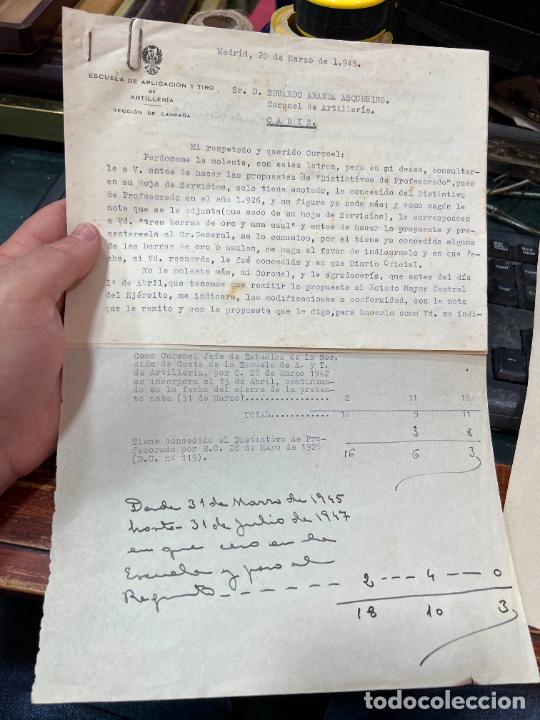 Madrid, 20 de Marzo de 1.945.
ESCUELA DE APLICACIÓN Y TIRO
DE
ARTILLERÍA
SECCIÓN DE CAMPAÑA
Sr. D. EDUARDO ARANDA ASQUERINO.
Coronel de Artillería.
CADIZ.
Mi respetado y querido Coronel:
Perdoneme le moleste, con estas letras, pero es mi deseo, consultar-
le a V. antes de hacer las propuestas de "Distintivos de Profesorado", pues
en su Hoja de Servicios, solo tiene anotado, la concesión del Distintivo
de Profesorado en el año 1.926, y no figura ya nada más; y como según la
nota que se le adjunta(que saco de su hoja de Servicios), le corresponden
a Vd. "tres barras de oro y una azul" y antes de hacer la propuesta y pre-
sentarsela al Sr. General, se lo comunico, por si tiene ya concedido alguna
de las barras de oro o azules, me haga el favor de indicarmelo y en que fe-
cha, si Vd. recuerdo, le fué concedida y en que Diario Oficial.
No le molesto más, mi Coronel, y le agradecería, que antes del día
1º de Abril, que tenemos que remitir la propuesta al Estado Mayor Central
del Ejército, me indicara, las modificaciones o conformidad, con la nota
que le remito y con la propuesta que le digo, para hacerlo como Vd. me indi-
Como Coronel Jefe de Estudios de la Sec
ción de Costa de la Escuela de A. y T.
de Artillería, por O. 23 de Marzo 1942
se incorpora el 13 de Abril, continuan-
do en la fecha del cierre de la presen-
te nota (31 de Marzo)......... 2 11 18
TOTAL............ 16 9 11
3 8
Tiene concedido el Distintivo de Pro-
fesorado por R.O. 28 de Mayo de 1926
(D.O. nº 119). 16 6 3
Desde 31 de Marzo de 1945
hasta 31 de Julio de 1947
en que ceso en la
Escuela y paso al
Regimiento - - - - - - 2 --- 4 --- 0
18 10 3
todocoleccion
todocoleccion.net